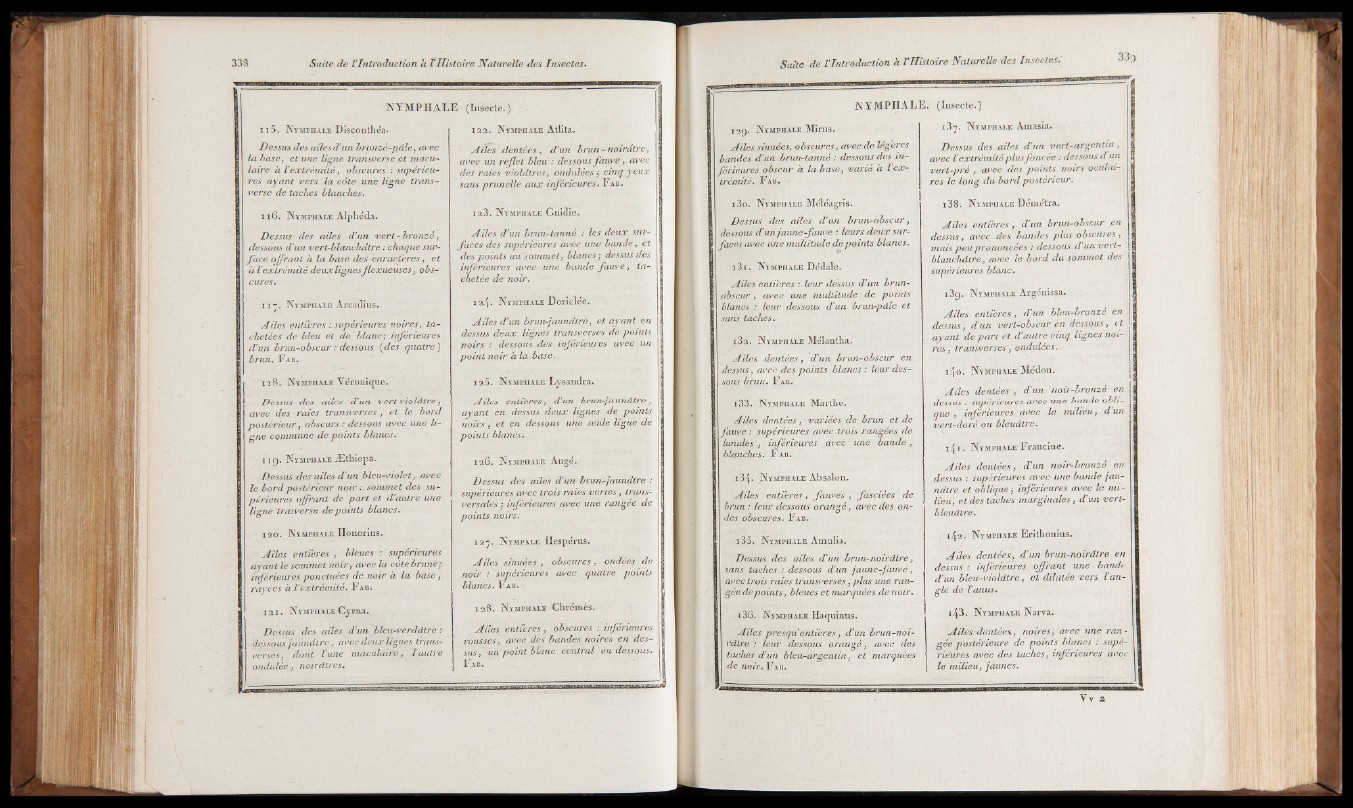 338
Suite de l'Introduction à l'Histoire Naturelle des Insectes.
NYMPHALE (Insecte.)
115. Nymphale Discouthéa.
Dessus des ailes d'un bronzé-pâle, avec
la base, et une ligne transverse et macu-
laire à l'extrémité, obscures : supérieu-
res ayant vers la côte une ligne trans-
verse de taches blanches.
116. Nymphale Alphéda.
Dessus des ailes d'un vert-bronzé,
dessous d'un vert-blanchâtre : chaque sur-
face offrant à la base des caractères, et
à l'extrémité deux lignes flexueuses, obs-
cures.
117. Nymphale Arcadius.
Ailes entières : supérieures noires, ta-
chetées de bleu et de blanc; inférieures
d'un brun-obscur : dessous (des quatre)
brun. Fab.
118. Nymphale Véronique.
Dessus des ailes d'un vert violâtre,
avec des raies transverses, et le bord
postérieur, obscurs : dessous avec une li-
gne commune de points blancs.
119. Nymphale Æthiopa.
Dessus des ailes d'un bleu-violet, avec
le bord postérieur noir : sommet des su-
périeures offrant de part et d'autre une
ligne transverse de points blancs.
120. Nymphale Honorius.
Ailes entières, bleues : supérieures
ayant le sommet noir, avec la côte brune;
inférieures ponctuées de noir à la base,
rayées à l'extrémité. Fab.
121. Nymphale Cyrna.
Dessus des ailes d'un bleu-verdâtre :
dessous jaunâtre, avec deux lignes trans-
verses, dont l'une maculaire, l'autre
ondulée, noirâtres.
122. Nymphale Atlita.
Ailes dentées, d'un brun-noirâtre,
avec un reflet bleu : dessous fauve, avec
des raies violâtres, ondulées; cinq yeux
sans prunelle aux inférieures. Fab.
123. Nymphale Gnidie.
Ailes d'un brun-tanné : les deux sur-
faces des supérieures avec une bande, et
des points au sommet, blancs; dessus des
inférieures avec une bande fauve, ta-
chetée de noir.
124. Nymphale Doriclée.
Ailes d'un brun-jaunâtre, et ayant en
dessus deux lignes transverses de points
noirs : dessous des inférieures avec un
point noir à la base.
125. Nymphale Lysandra.
Ailes entières, d'un brun-jaunâtre,
ayant en dessus deux lignes de points
noirs, et en dessous une seule ligne de
points blancs.
126. Nymphale Angé.
Dessus des ailes d'un brun-jaunâtre :
supérieures avec trois raies vertes, trans-
versales; inférieures avec une rangée de
points noirs.
127. Nympale Hespérus.
Ailes sinuées, obscures, ondées de
noir : supérieures avec quatre points
blancs. Fab.
128. Nymphale Chrémès.
Ailes entières, obscures : inférieures
rousses, avec des bandes noires en des-
sus, un point blanc central en dessous.
Fab.
Suite de l'Introduction à l'Histoire Naturelle des Insectes.
339
NYMPHALE. (Insecte.)
129. Nymphale Mirus.
Ailes sinuées, obscures, avec de légères
bandes d'un brun-tanné : dessous des in-
férieures obscur à la base, varié à l'ex-
trémité. Fab.
130. Nymphale Méléagris.
Dessus des ailes d'un brun-obscur,
dessous d'un jaune-fauve : leurs deux sur-
faces avec une multitude de points blancs.
131. Nymphale Dédale.
Ailes entières : leur dessus d'un brun-
obscur, avec une multitude de points
blancs : leur dessous d'un brun-pâle et
sans taches.
132. Nymphale Mélantha.
Ailes dentées, d'un brun-obscur en
dessus, avec des points blancs : leur des-
sous brun. Fab.
133. Nymphale Marthe.
Ailes dentées, variées de brun et de
fauve : supérieures avec trois rangées de
lunules, inférieures avec une bande,
blanches. Fab.
134. Nymphale Absalon.
Ailes entières, fauves, fasciées de
brun : leur dessous orangé, avec des on-
des obscures. Fab.
135. Nymphale Amulia.
Dessus des ailes d'un brun-noirâtre,
sans taches : dessous d'un jaune-fauve,
avec trois raies transverses, plus une ran-
gée de points, bleues et marquées de noir.
136. Nymphale Haquinus.
Ailes presqu'entières, d'un brun-noi-
râtre : leur dessous orangé, avec des
taches d'un bleu-argentin, et marquées
de noir. Fab.
137. Nymphale Amasia.
Dessus des ailes d'un vert-argentin,
avec l'extrémité plus foncée : dessous d'un
vert-pré, avec des points noirs oculai-
res le long du bord postérieur.
138. Nymphale Démétra.
Ailes entières, d'un brun-obscur en
dessus, avec des bandes plus obscures,
mais peu prononcées : dessous d'un vert-
blanchâtre, avec le bord du sommet des
supérieures blanc.
139. Nymphale Argénissa.
Ailes entières, d'un bleu-bronzé en
dessus, d'un vert-obscur en dessous, et
ayant de part et d'autre cinq lignes noi-
res, transverses, ondulées.
140. Nymphale Médon.
Ailes dentées, d'un noir-bronzé en
dessus : supérieures avec une bande obli-
que, inférieures avec le milieu, d'un
vert-doré ou bleuâtre.
141. Nymphale Francine.
Ailes dentées, d'un noir-bronzé en
dessus : supérieures avec une bande jau-
nâtre et oblique; inférieures avec le mi-
lieu, et des taches marginales, d'un vert-
bleuâtre.
142. Nymphale Erithonius.
Ailes dentées, d'un brun-noirâtre en
dessus : inférieures offrant une bande
d'un bleu-violâtre, et dilatée vers l'an-
gle de l'anus.
143. Nymphale Narva.
Ailes dentées, noires, avec une ran-
gée postérieure de points blancs : supé-
rieures avec des taches, inférieures avec
le milieu, jaunes.
Vv 2